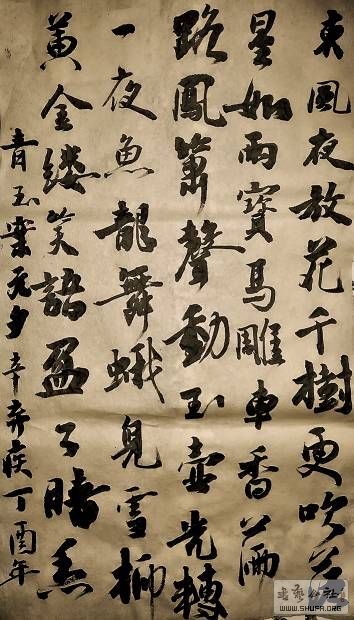 東風夜放花千樹更吹落
星如雨寶馬雕車香滿
路鳳簫聲動玉壺光轉
一夜魚龍舞蛾兒雪柳
黄金缕笑語盈々暗香
青玉案元夕辛弃疾丁酉年
WWW.SHUFA.ORG